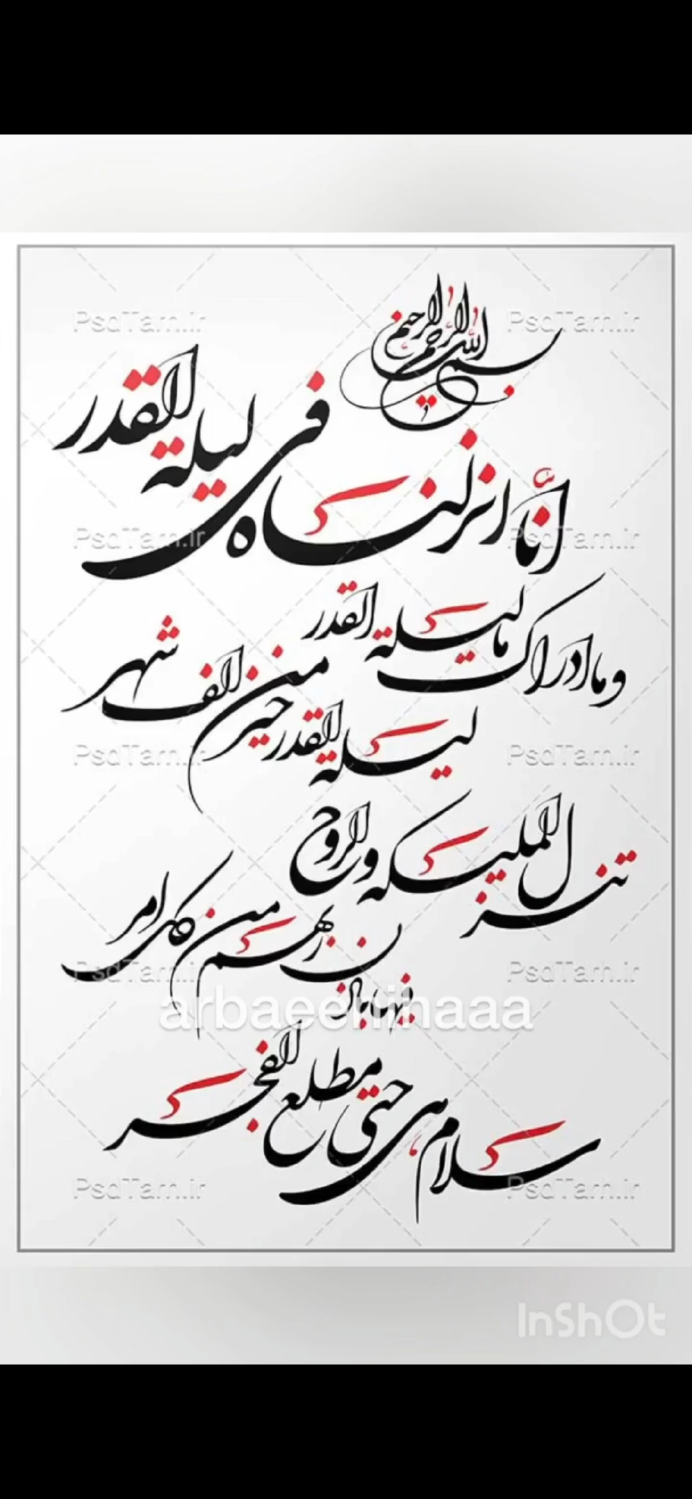 بسم الله الرحمن الرحیم
انّا انزلناه فی لیلة القدر
وما ادراک ما لیلة القدر
لیلة القدر خیر من الف شهر
تنزل الملیکه والروح
فیها باذن ربهم من کل امر
سلام هی حتی مطلع الفجر
PsdTam.ir PsdTam.ir
PsdTam.ir PsdTam.ir
PsdTam.ir PsdTam.ir
PsdTam.ir PsdTam.ir
arbaeenihaaa
PsdTam.ir PsdTam.ir
InShOt